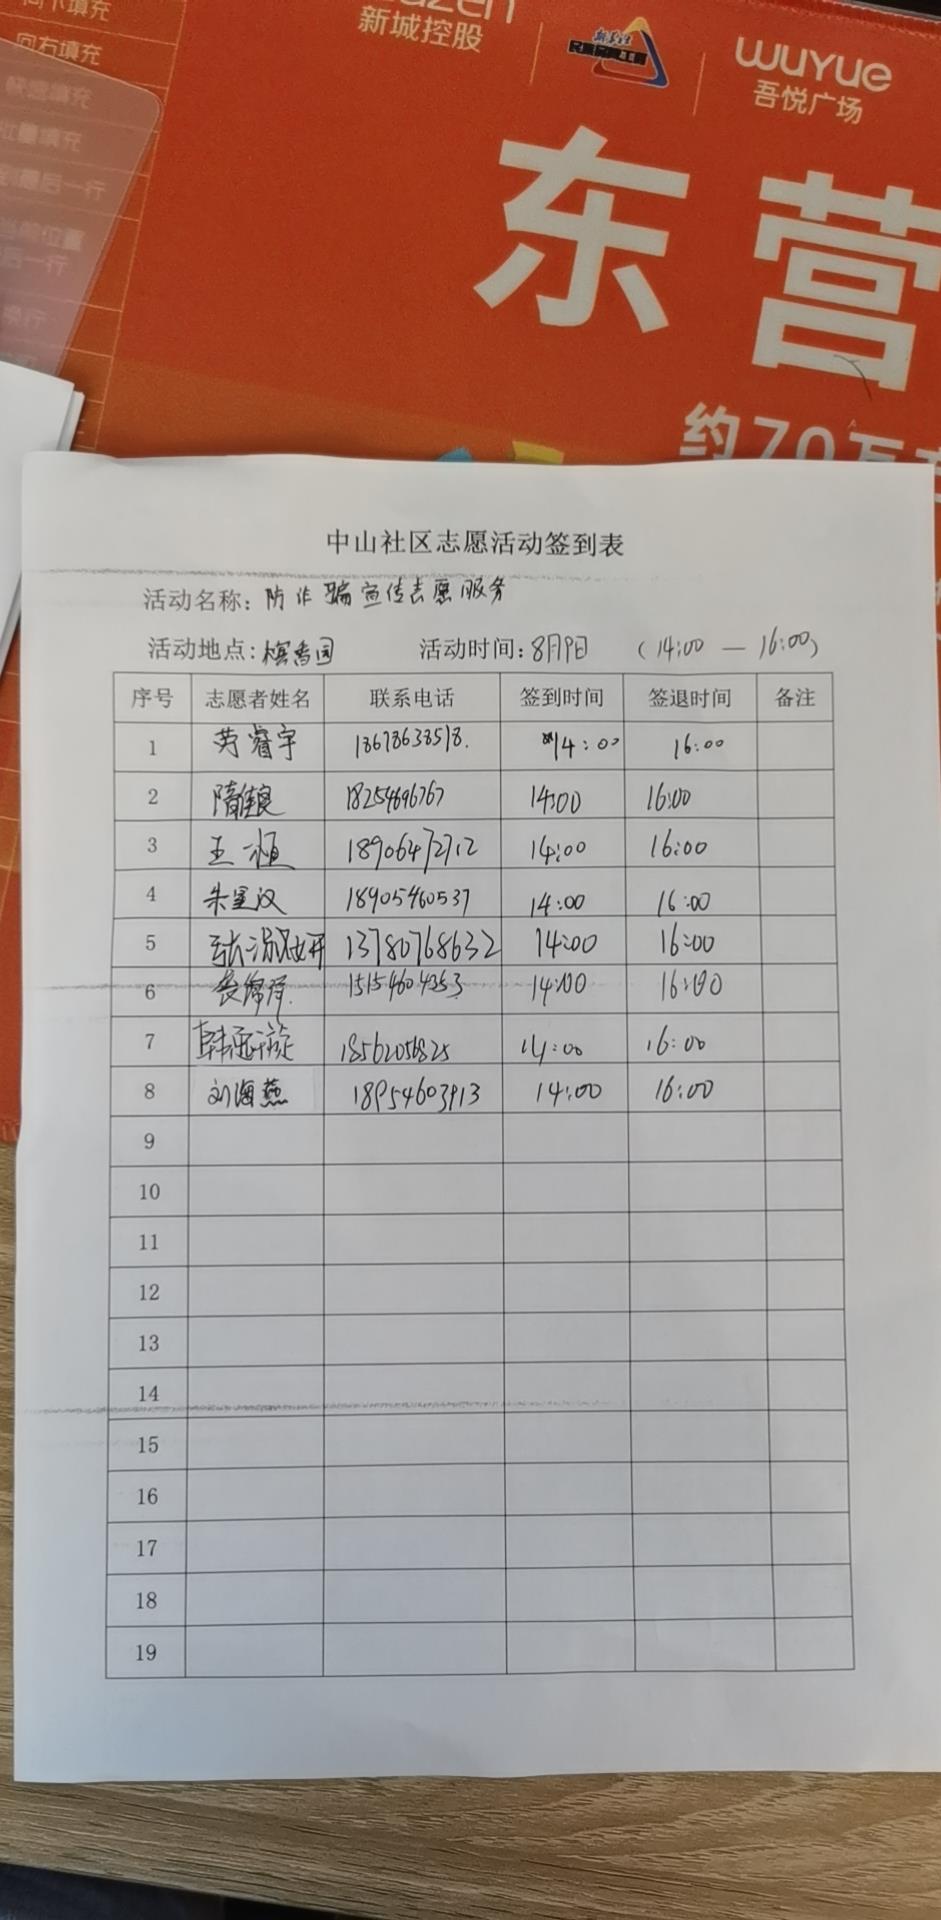 向下填充
向右填充
快速填充
新城控股
WUYUE
吾悦广场
东营
约70万
中山社区志愿活动签到表
活动名称: 防诈骗宣传志愿服务
活动地点: 槟香园 活动时间: 8月9日 (14:00 — 16:00)
序号 志愿者姓名 联系电话 签到时间 签退时间 备注
1 劳睿宇 18678638518. 14:00 16:00
2 隋佳良 18254696767 14:00 16:00
3 王恒 18906472712 14:00 16:00
4 朱星汉 18905460537 14:00 16:00
5 张淑妍 13780768632 14:00 16:00
6 15154604353 14:00 16:00
7 18562056825 14:00 16:00
8 刘海燕 18954603913 14:00 16:00
9
10
11
12
13
14
15
16
17
18
19